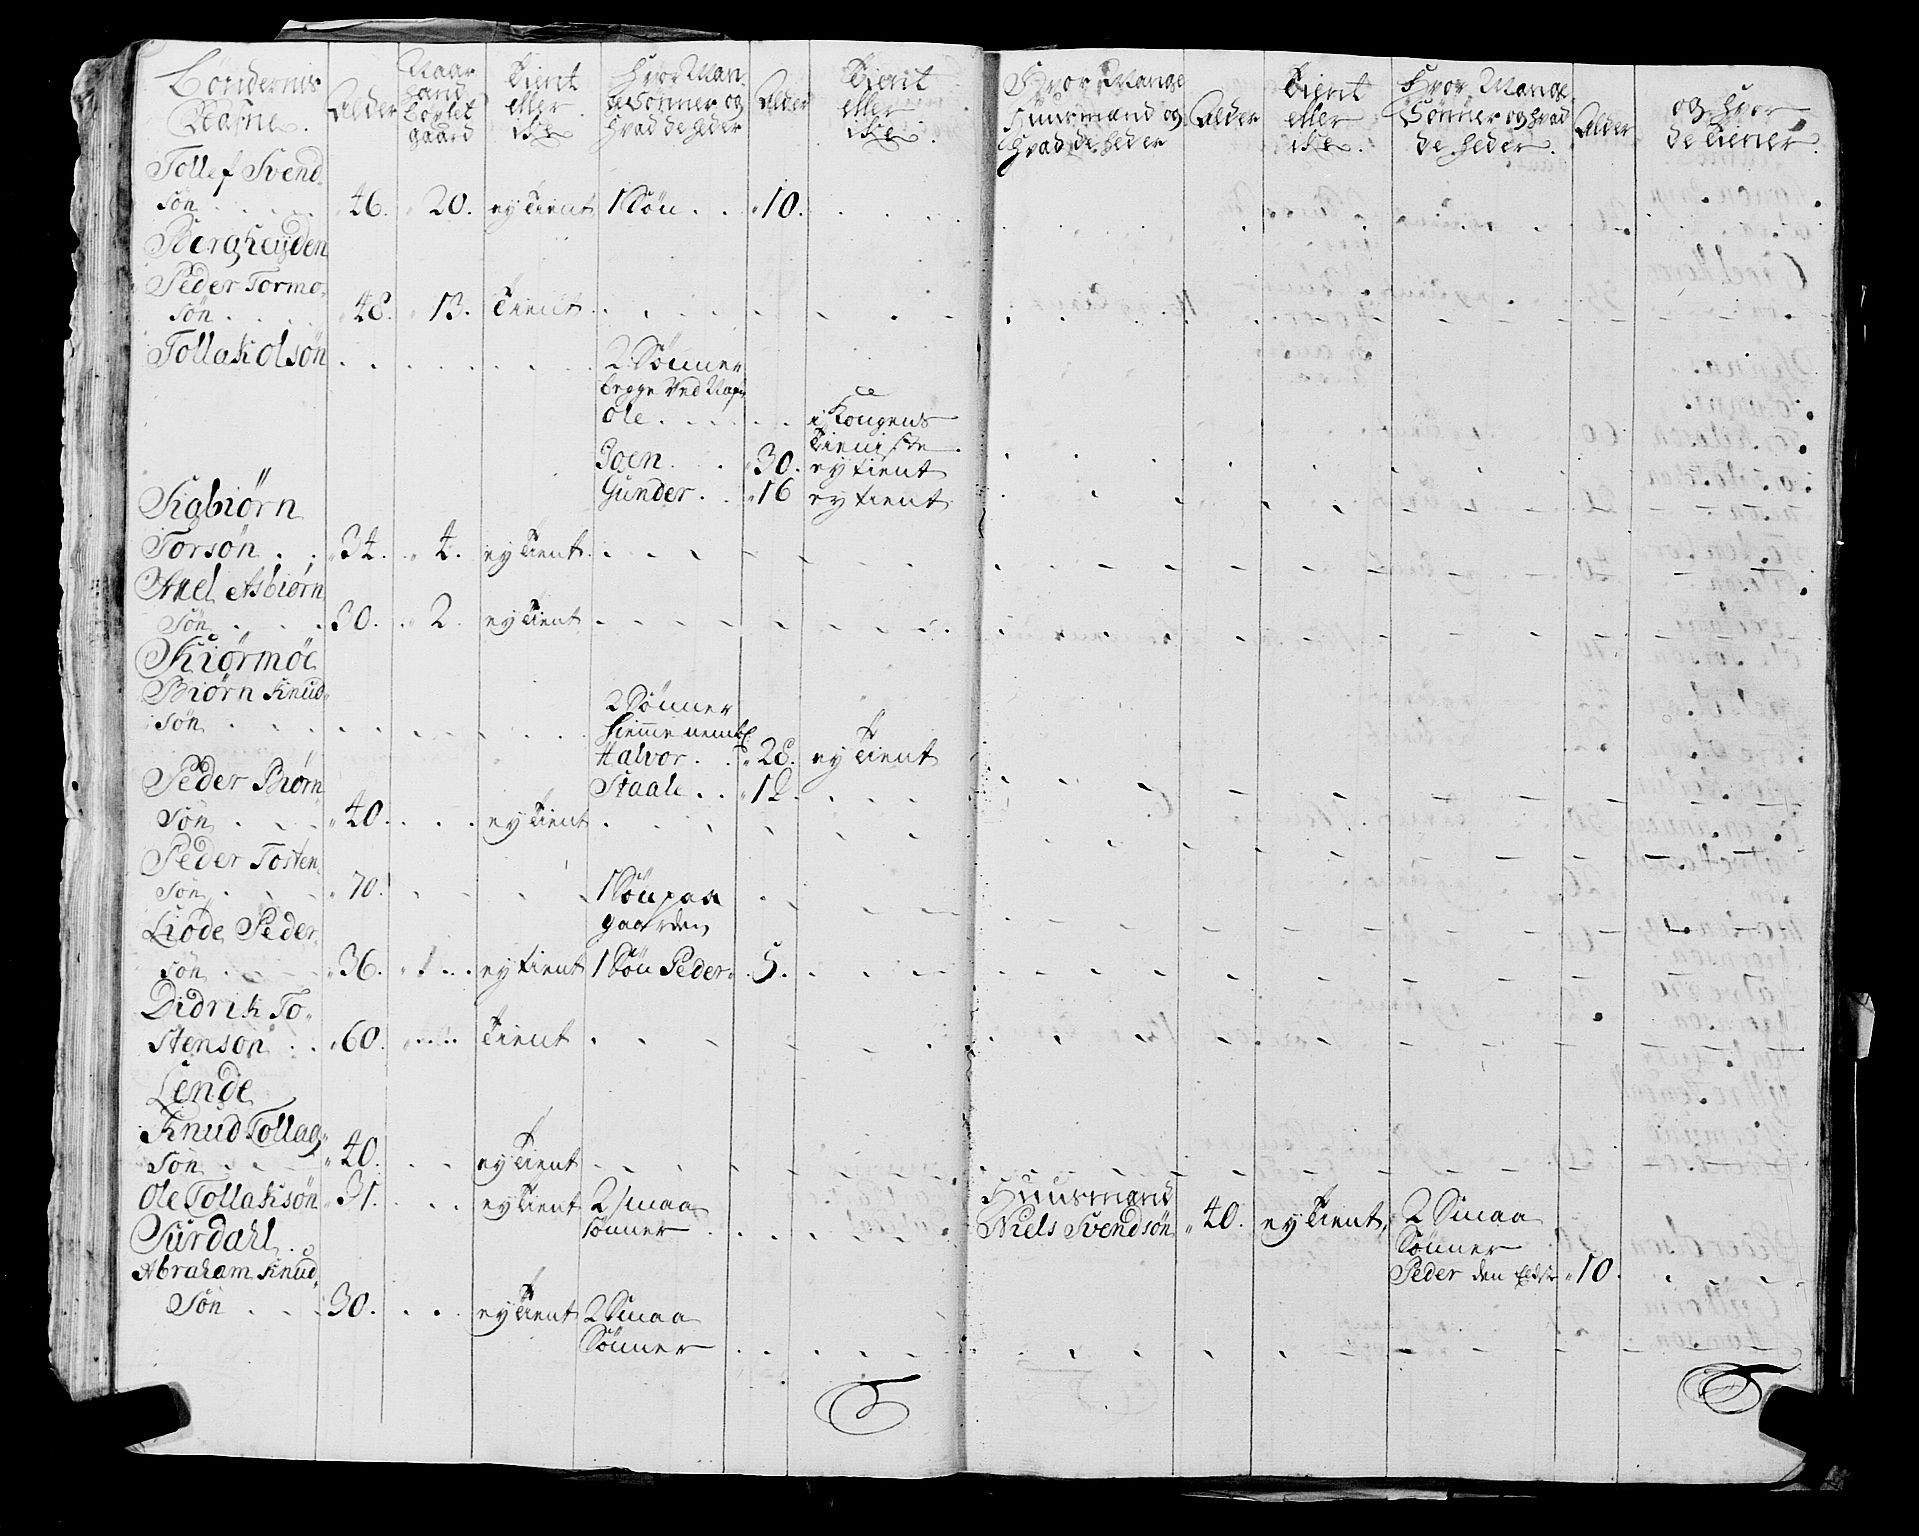 Bøndernis
Nafne.
Alder
Naar
hand
bøxlet
gaard
Tient
eller
iche
Hvor Man
ge Sønner og
hvad de heder
Alder
Tient
eller
iche
Hvor Mange
Huusmænd og
hvad de heder
Alder
Tient
eller
iche
Hvor Mange
Sønner og hvad
de heder
Alder
og hvor
de tiener
Tollef Svend
søn 46. 20. ey tient 1 Søn 10.
Bergheyden
Peder Tormo
søn 48. 13. tient
Tollak Olsøn 2 Sønner
begge ved Nafn
Ole i Kongens
tieniste
Joen 30. ey tient
Gunder 16 ey tient
Sigbiørn
Torsøn 34. 4. ey tient
Axel Asbiørn
søn 30. 2. ey tient
Kiørmoe
Biørn Knud
søn 2 Sønner
hiemme nembl
Halvor 28. ey tient
Staale 12.
Peder Biørn
søn 40. ey tient
Peder Tosten
søn 70. 1 Søn paa
gaarden
Liøde Peder
søn 36. 1 ey tient 1 Søn Peder 5.
Didrik To
stensøn 60. tient
Lende
Knud Tollag
søn 40. ey tient
Ole Tollaksøn 31. ey tient 2 smaa
sønner
Huusmand
Niels Svendsøn 40. ey tient 2 Smaa
Sønner
Peder den Eldste 10.
Surdahl
Abraham Knud
søn 30. ey tient 2 Smaa
Sønner